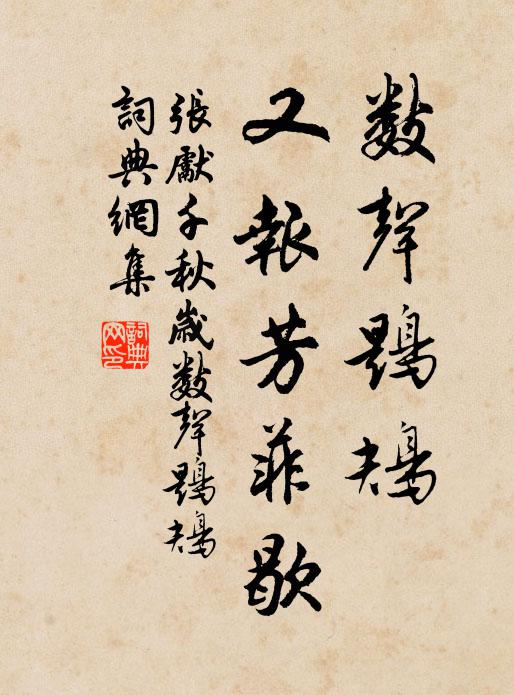 數聲鶗鴂
又報芳菲歇
張獻千秋歲數聲鶗鴂
詞典網集
詞典
网印